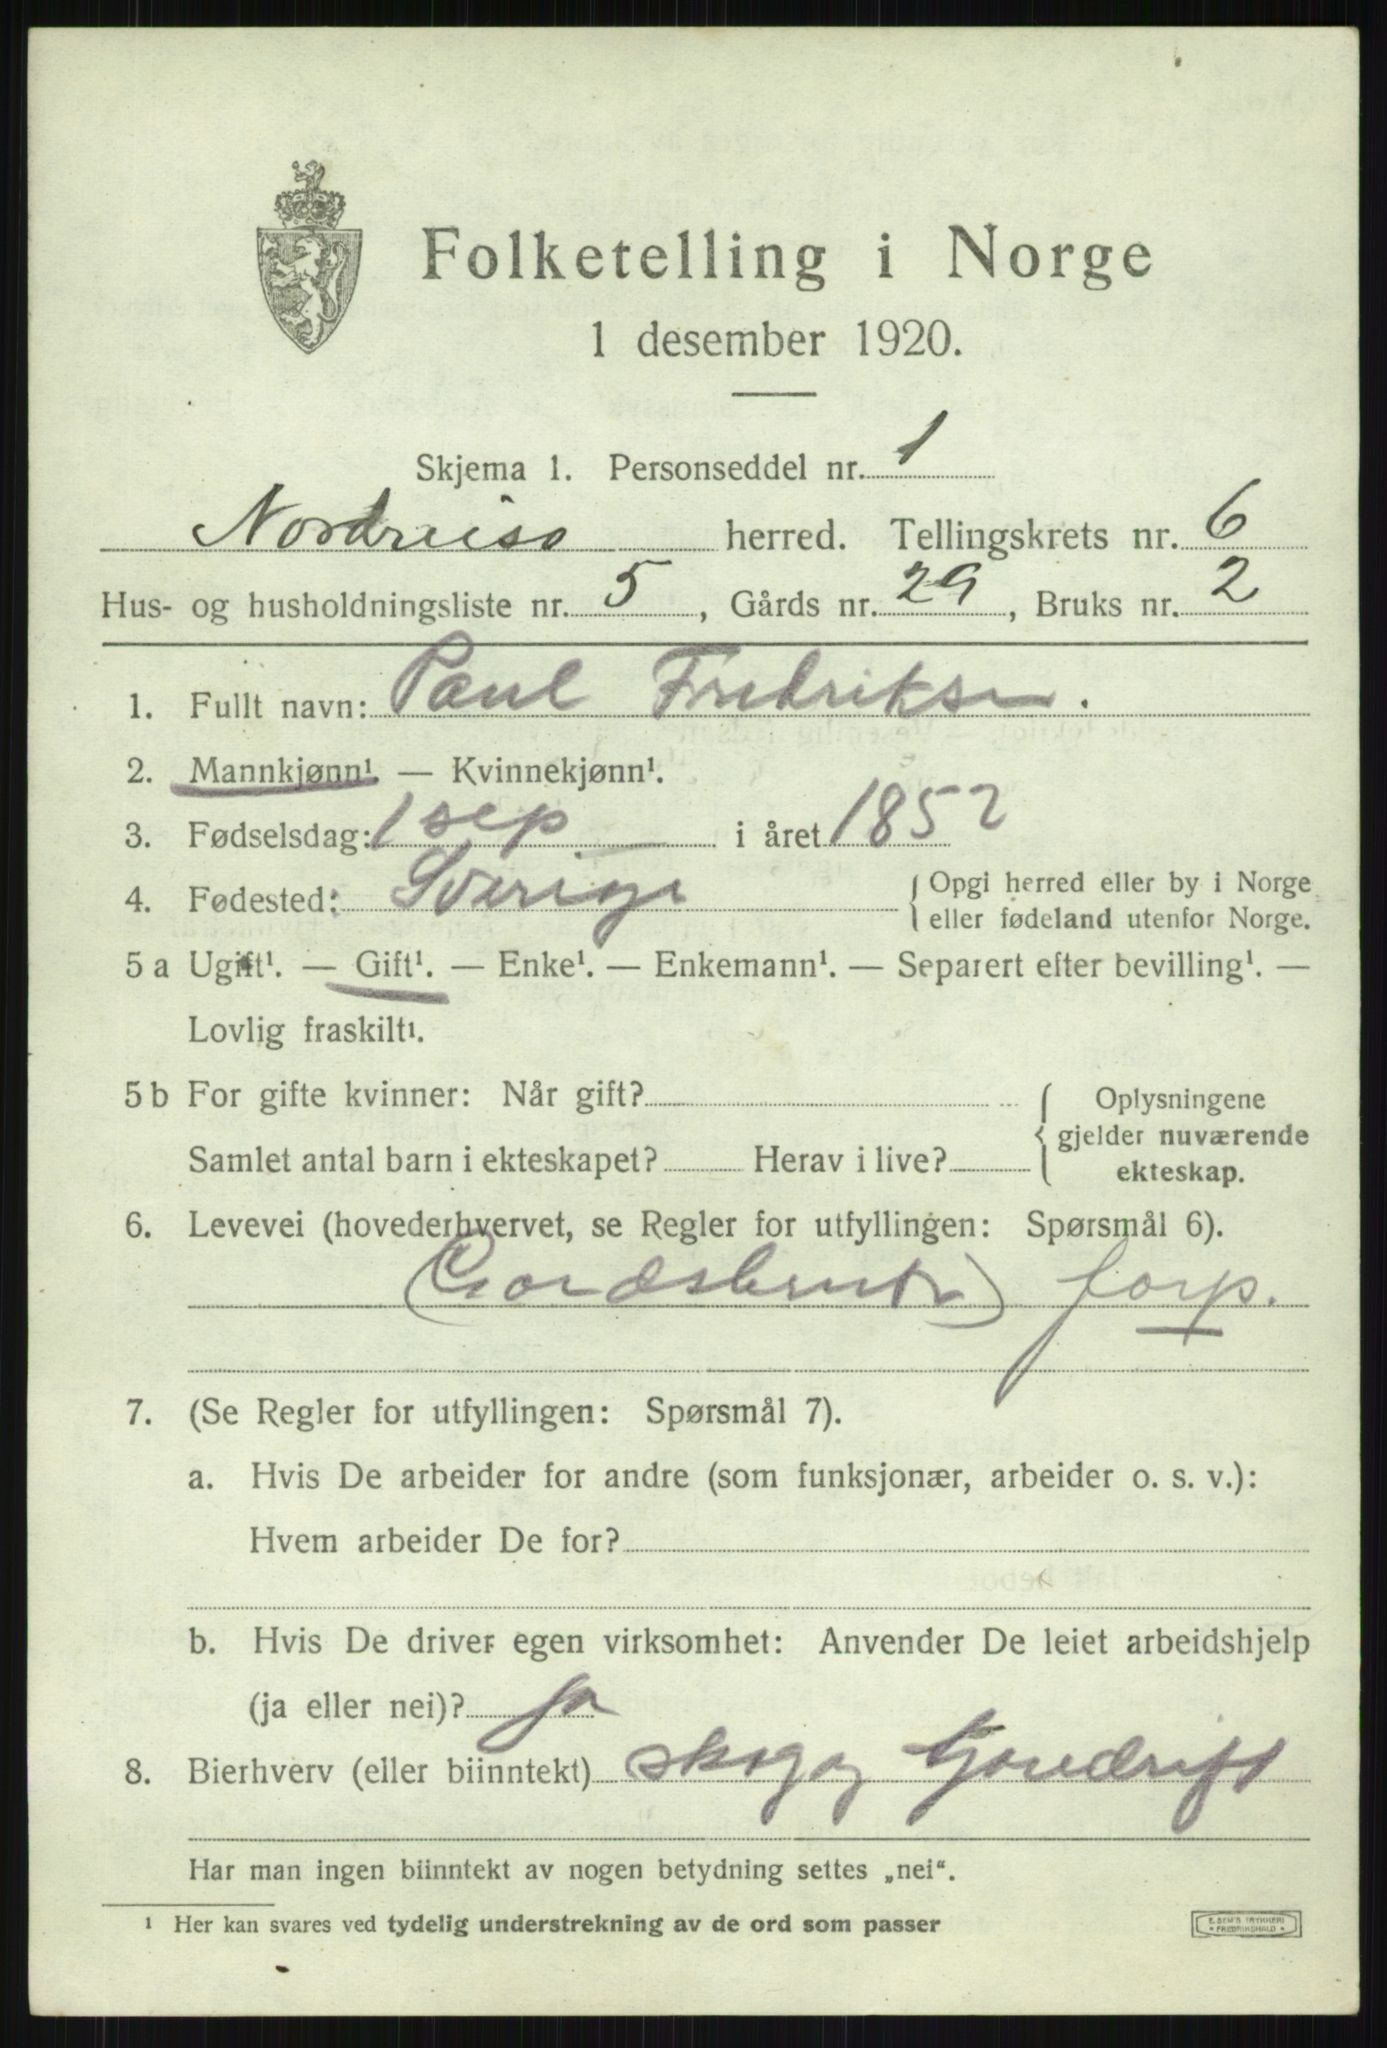 Folketelling i Norge
1 desember 1920.
Skjema 1. Personseddel nr. 1
Nordreisa herred. Tellingskrets nr. 6
Hus- og husholdningsliste nr. 5, Gårds nr. 29, Bruks nr. 2
1. Fullt navn: Paul Fredriksen.
2. Mannkjønn¹. — Kvinnekjønn¹.
3. Fødselsdag: 1 sep i året 1852
4. Fødested: Sverige { Opgi herred eller by i Norge
eller fødeland utenfor Norge.
5 a Ugift¹. — Gift¹. — Enke¹. — Enkemann¹. — Separert efter bevilling¹. —
Lovlig fraskilt¹.
5 b For gifte kvinner: Når gift? { Oplysningene
gjelder nuværende
Samlet antal barn i ekteskapet? Herav i live?
ekteskap.
6. Levevei (hovederhvervet, se Regler for utfyllingen: Spørsmål 6).
(Gardsbruker) forp.
7. (Se Regler for utfyllingen: Spørsmål 7).
a. Hvis De arbeider for andre (som funksjonær, arbeider o. s. v.):
Hvem arbeider De for?
b. Hvis De driver egen virksomhet: Anvender De leiet arbeidshjelp
(ja eller nei)? ja
8. Bierhverv (eller biinntekt) skog og
Har man ingen biinntekt av nogen betydning settes „nei“.
¹ Her kan svares ved tydelig understrekning av de ord som passer
E. SEM'S TRYKKERI
• FREDRIKSHALD •